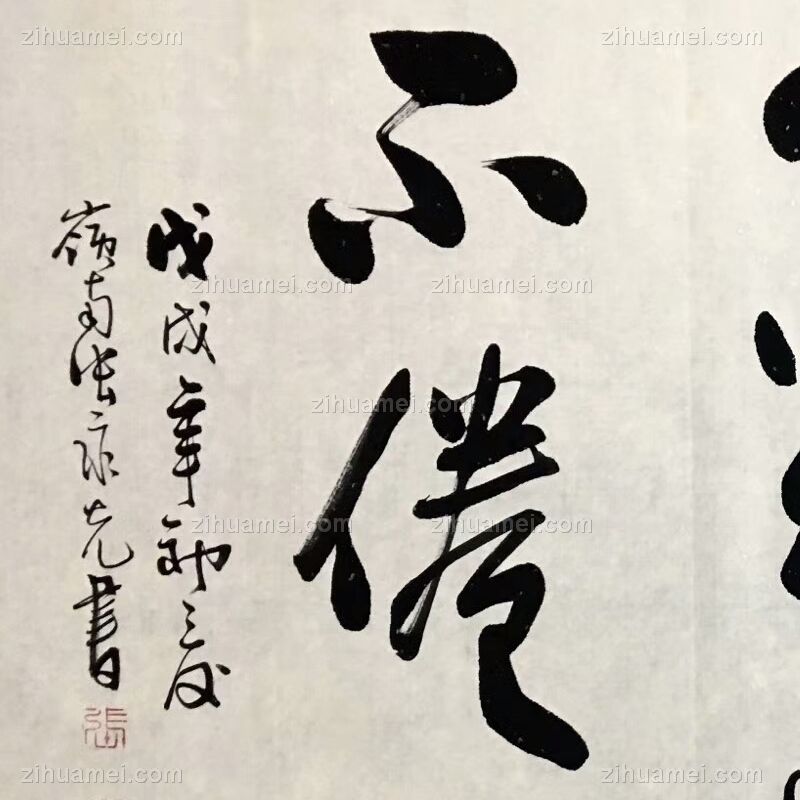 不倦
戊戌年
嶺南張光書
張
zihuamei.com
zihuamei.com
zihuamei.com
zihuamei.com
zihuamei.com
zihuamei.com
zihuamei.com
zihuamei.com
zihuamei.com